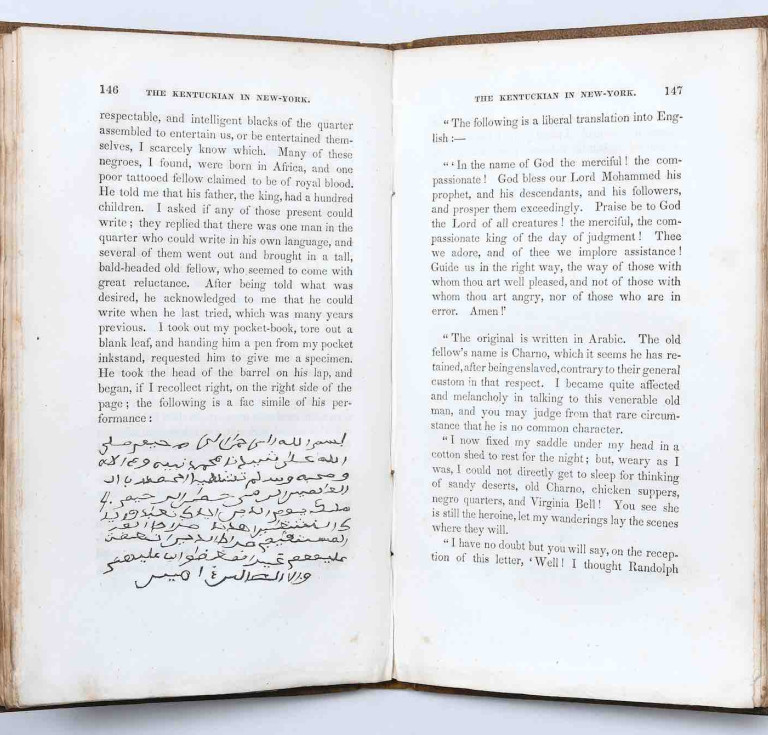 146 THE KENTUCKIAN IN NEW-YORK.
respectable, and intelligent blacks of the quarter
assembled to entertain us, or be entertained them-
selves, I scarcely know which. Many of these
negroes, I found, were born in Africa, and one
poor tattooed fellow claimed to be of royal blood.
He told me that his father, the king, had a hundred
children. I asked if any of those present could
write; they replied that there was one man in the
quarter who could write in his own language, and
several of them went out and brought in a tall,
bald-headed old fellow, who seemed to come with
great reluctance. After being told what was
desired, he acknowledged to me that he could
write when he last tried, which was many years
previous. I took out my pocket-book, tore out a
blank leaf, and handing him a pen from my pocket
inkstand, requested him to give me a specimen.
He took the head of the barrel on his lap, and
began, if I recollect right, on the right side of the
page; the following is a fac simile of his per-
formance:
الله صلى
الله محمد نبيه
وسلم
ملك يوم
صراط
عليهم غير عليهم
THE KENTUCKIAN IN NEW-YORK. 147
“The following is a liberal translation into Eng-
lish:—
“‘In the name of God the merciful! the com-
passionate! God bless our Lord Mohammed his
prophet, and his descendants, and his followers,
and prosper them exceedingly. Praise be to God
the Lord of all creatures! the merciful, the com-
passionate king of the day of judgment! Thee
we adore, and of thee we implore assistance!
Guide us in the right way, the way of those with
whom thou art well pleased, and not of those with
whom thou art angry, nor of those who are in
error. Amen!’
“The original is written in Arabic. The old
fellow's name is Charno, which it seems he has re-
tained, after being enslaved, contrary to their general
custom in that respect. I became quite affected
and melancholy in talking to this venerable old
man, and you may judge from that rare circum-
stance that he is no common character.
“I now fixed my saddle under my head in a
cotton shed to rest for the night; but, weary as I
was, I could not directly get to sleep for thinking
of sandy deserts, old Charno, chicken suppers,
negro quarters, and Virginia Bell! You see she
is still the heroine, let my wanderings lay the scenes
where they will.
“I have no doubt but you will say, on the recep-
tion of this letter, ‘Well! I thought Randolph